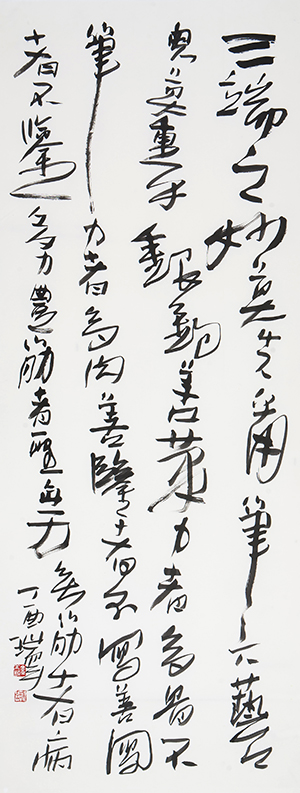 三端之妙莫先乎用筆六藝之
奧莫重乎銀鉤善筆力者多骨不
筆力者多肉善鑒者不寫善寫
者不鑒多力豐筋者聖無力
無筋者病
丁酉瑞